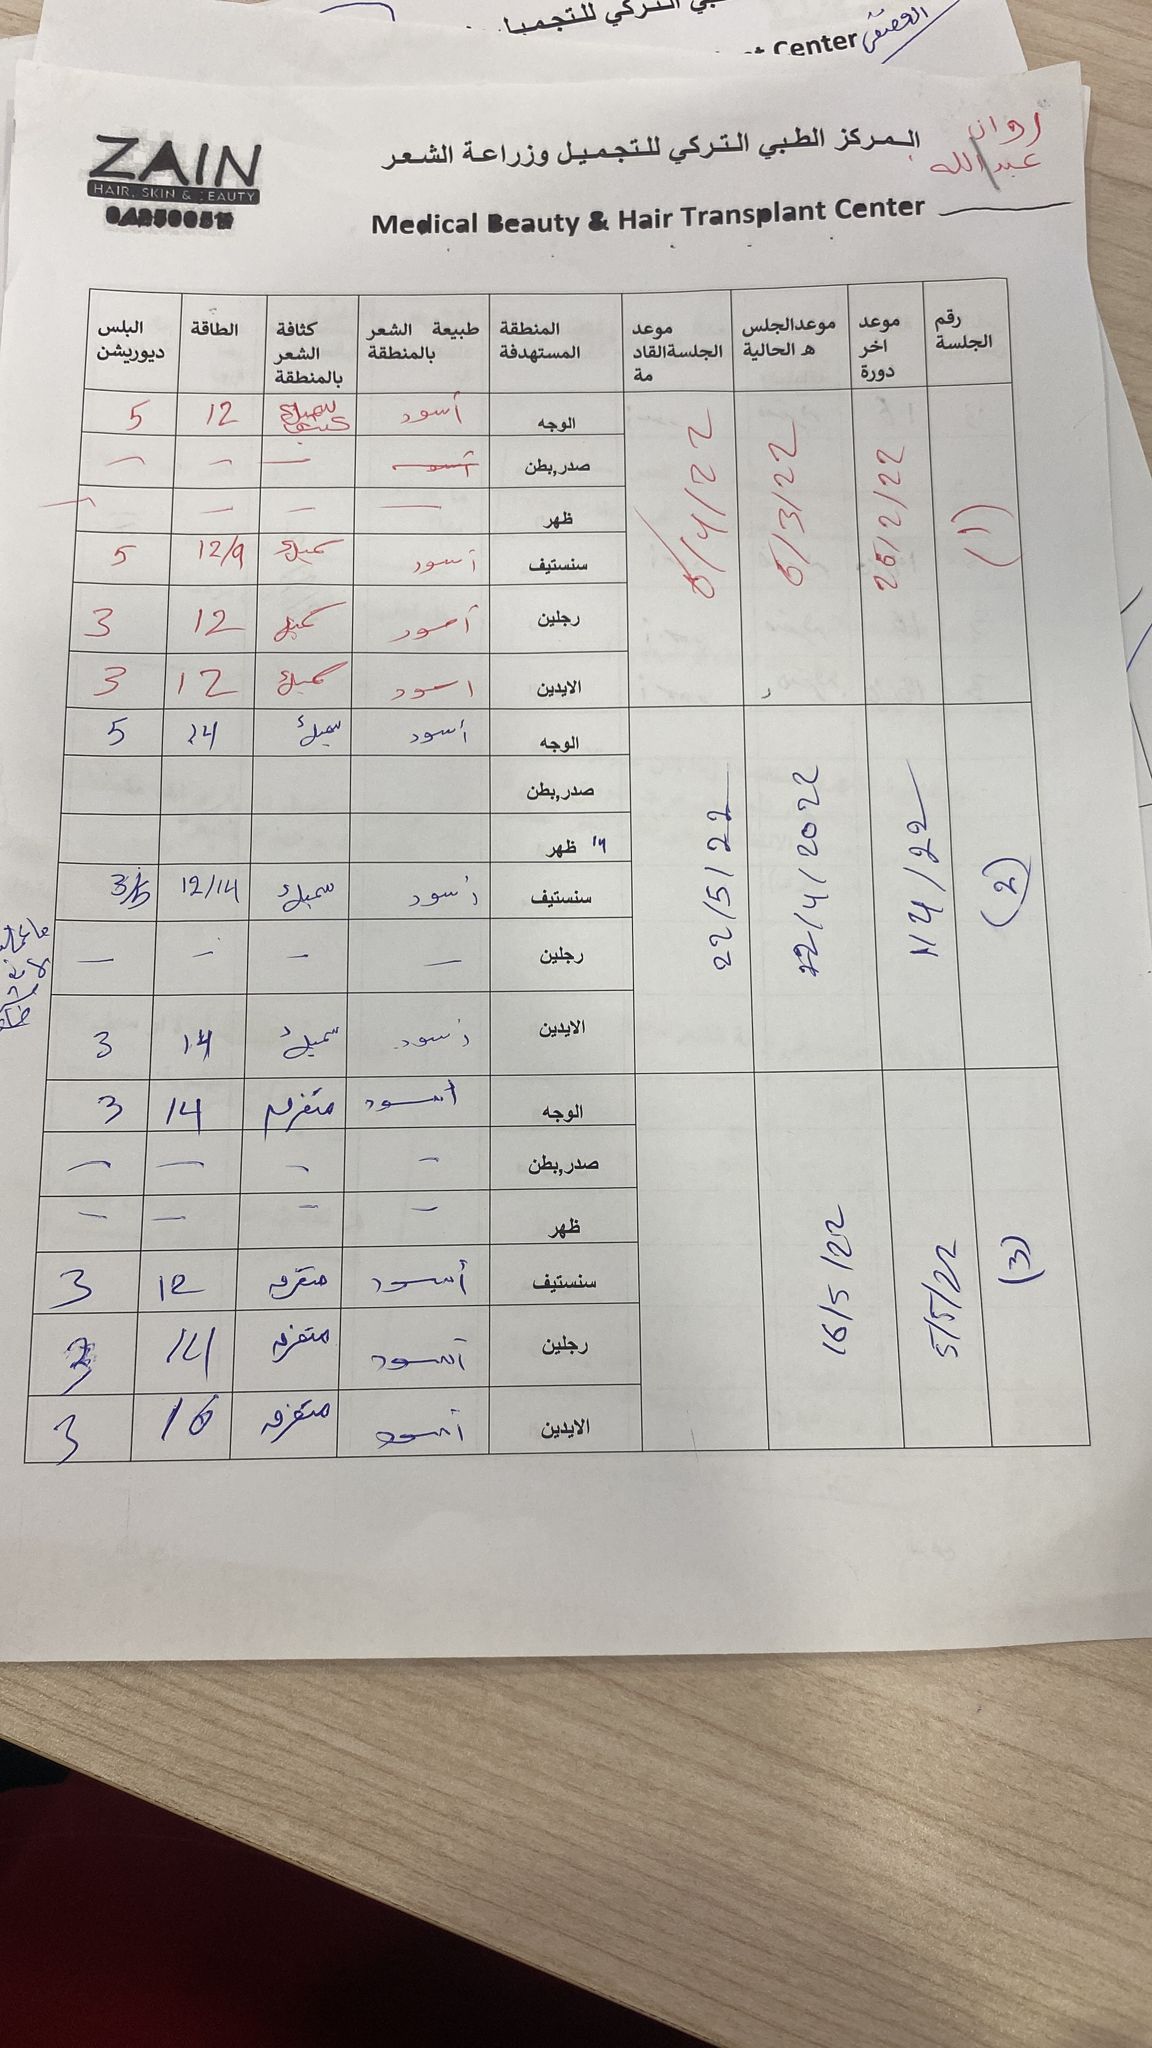 بي التركي للتجميل
Center
ZAIN
HAIR, SKIN & BEAUTY
المركز الطبي التركي للتجميل وزراعة الشعر
روان
عبدالله
Medical Beauty & Hair Transplant Center
رقم الجلسة | موعد اخر دورة | موعدالجلس ه الحالية | موعد الجلسةالقاد مة | المنطقة المستهدفة | طبيعة الشعر بالمنطقة | كثافة الشعر بالمنطقة | الطاقة | البلس ديوريشن
(1) 26/2/22 6/3/22 6/4/22
الوجه أسود سميك 12 5
صدر,بطن أسود — — —
ظهر — — —
سنستيف أسود سميك 12/9 5
رجلين أسود سميك 12 3
الايدين اسود سميك 12 3
(2) 4/22 22/4/2022 22/5/22
الوجه أسود سميك 14 5
صدر,بطن
ظهر
سنستيف أسود سميك 12/14 3/5
رجلين — — — —
الايدين أسود سميك 14 3
(3) 5/5/22 16/5/22
الوجه أسود متفرق 14 3
صدر,بطن — — — —
ظهر — — — —
سنستيف أسود متفرق 12 3
رجلين أسود متفرق 14 3
الايدين أسود متفرق 16 3